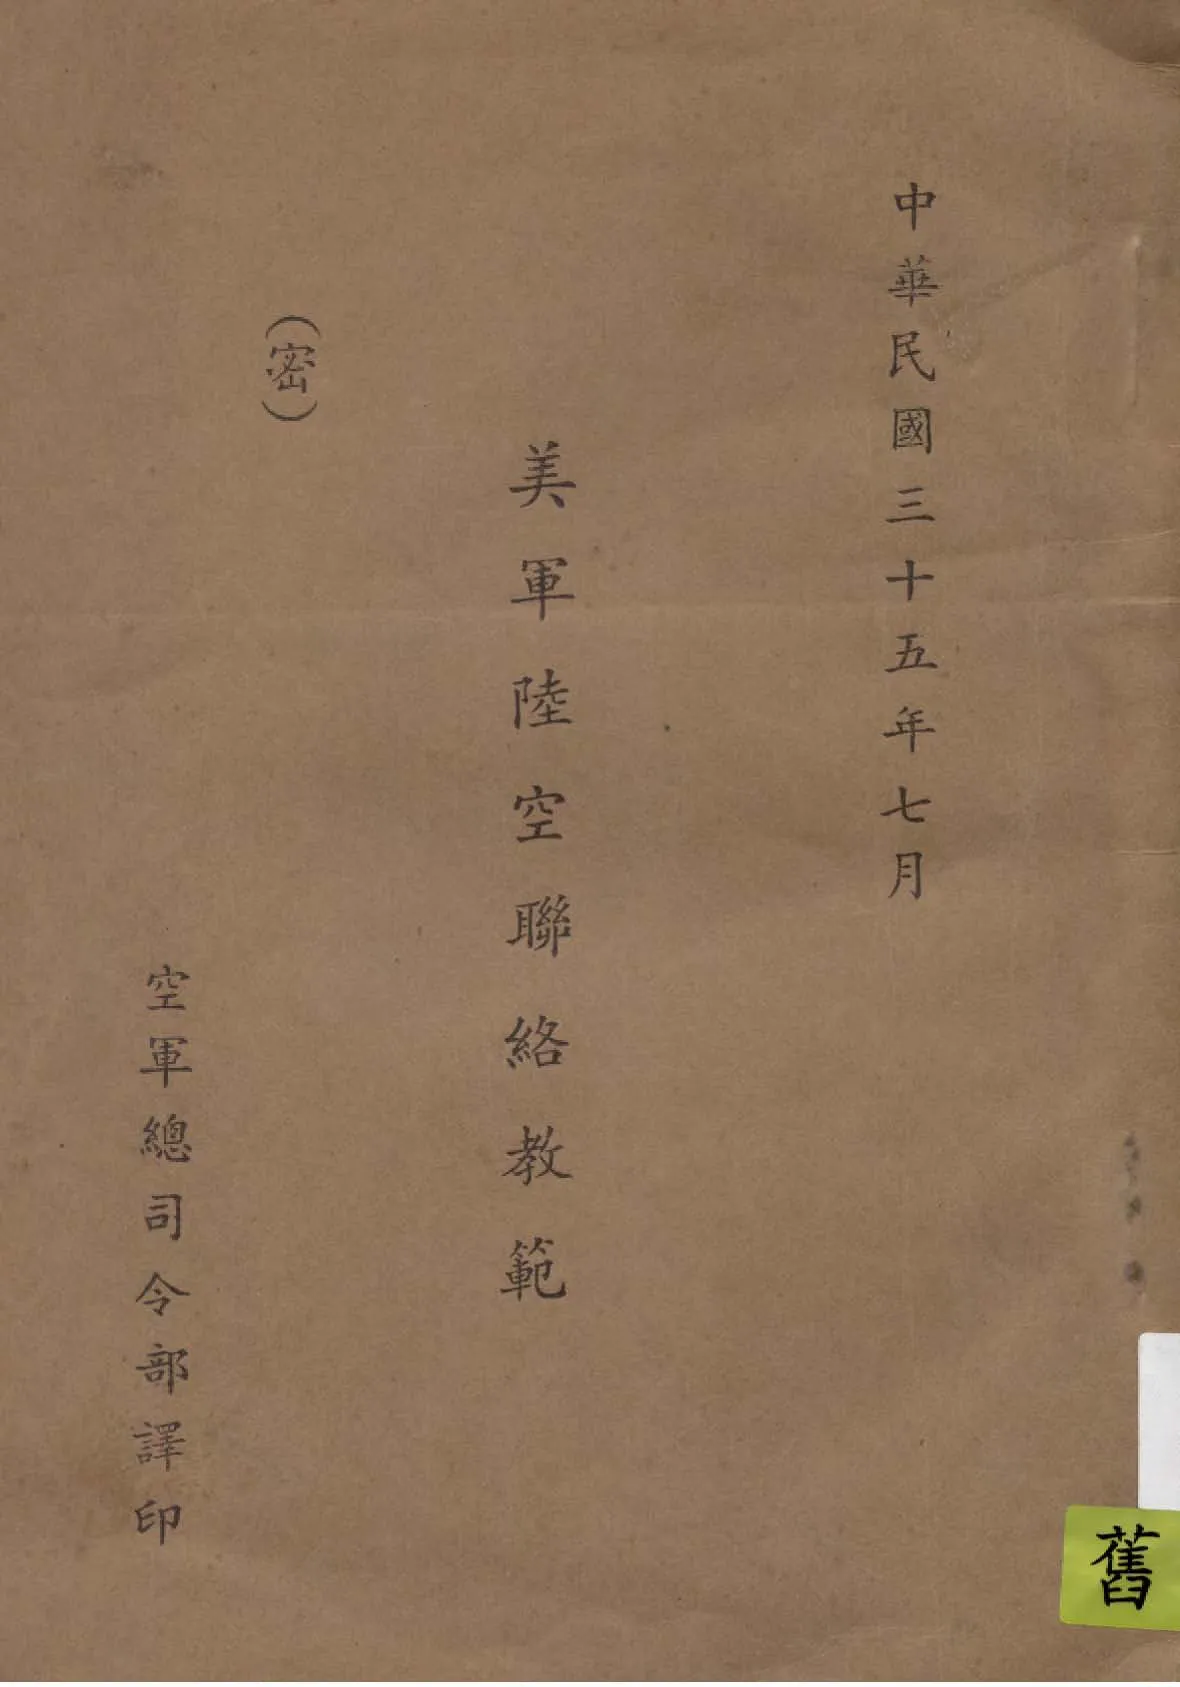 中華民國三十五年七月
美軍陸空聯絡教範
(密)
空軍總司令部譯印
舊